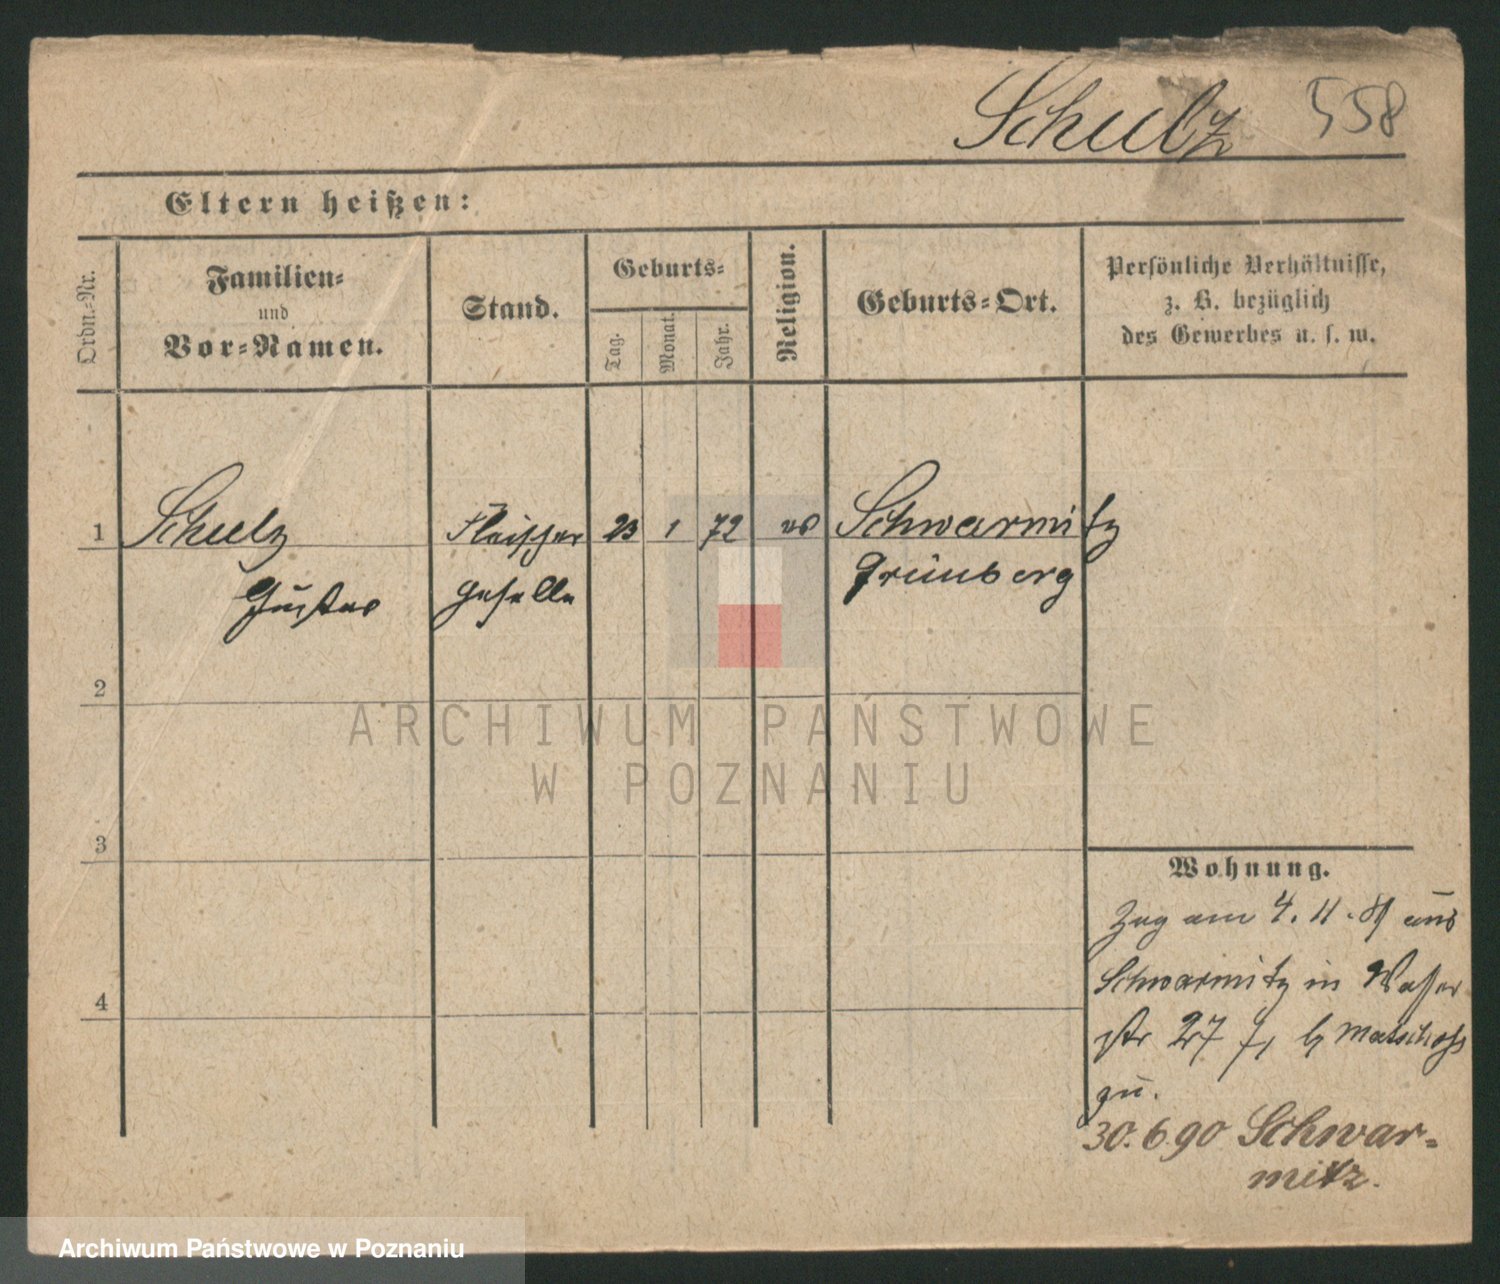 Schulz 558
Eltern heißen:
Ordn.-Nr.
Familien-
und
Vor-Namen.
Stand.
Geburts-
Tag.
Monat.
Jahr.
Religion.
Geburts-Ort.
Persönliche Verhältnisse,
z. B. bezüglich
des Gewerbes u. s. w.
1 Schulz Fleischer 23 1 72 ev Schwarmitz
Gustav geselle Grünberg
2
3
4
Wohnung.
Zug am 4. 11. 89 aus
Schwarmitz in Wasser
str 27 b Matschoss
zu.
30.6.90 Schwar-
mitz.
ARCHIWUM PAŃSTWOWE
W POZNANIU
Archiwum Państwowe w Poznaniu